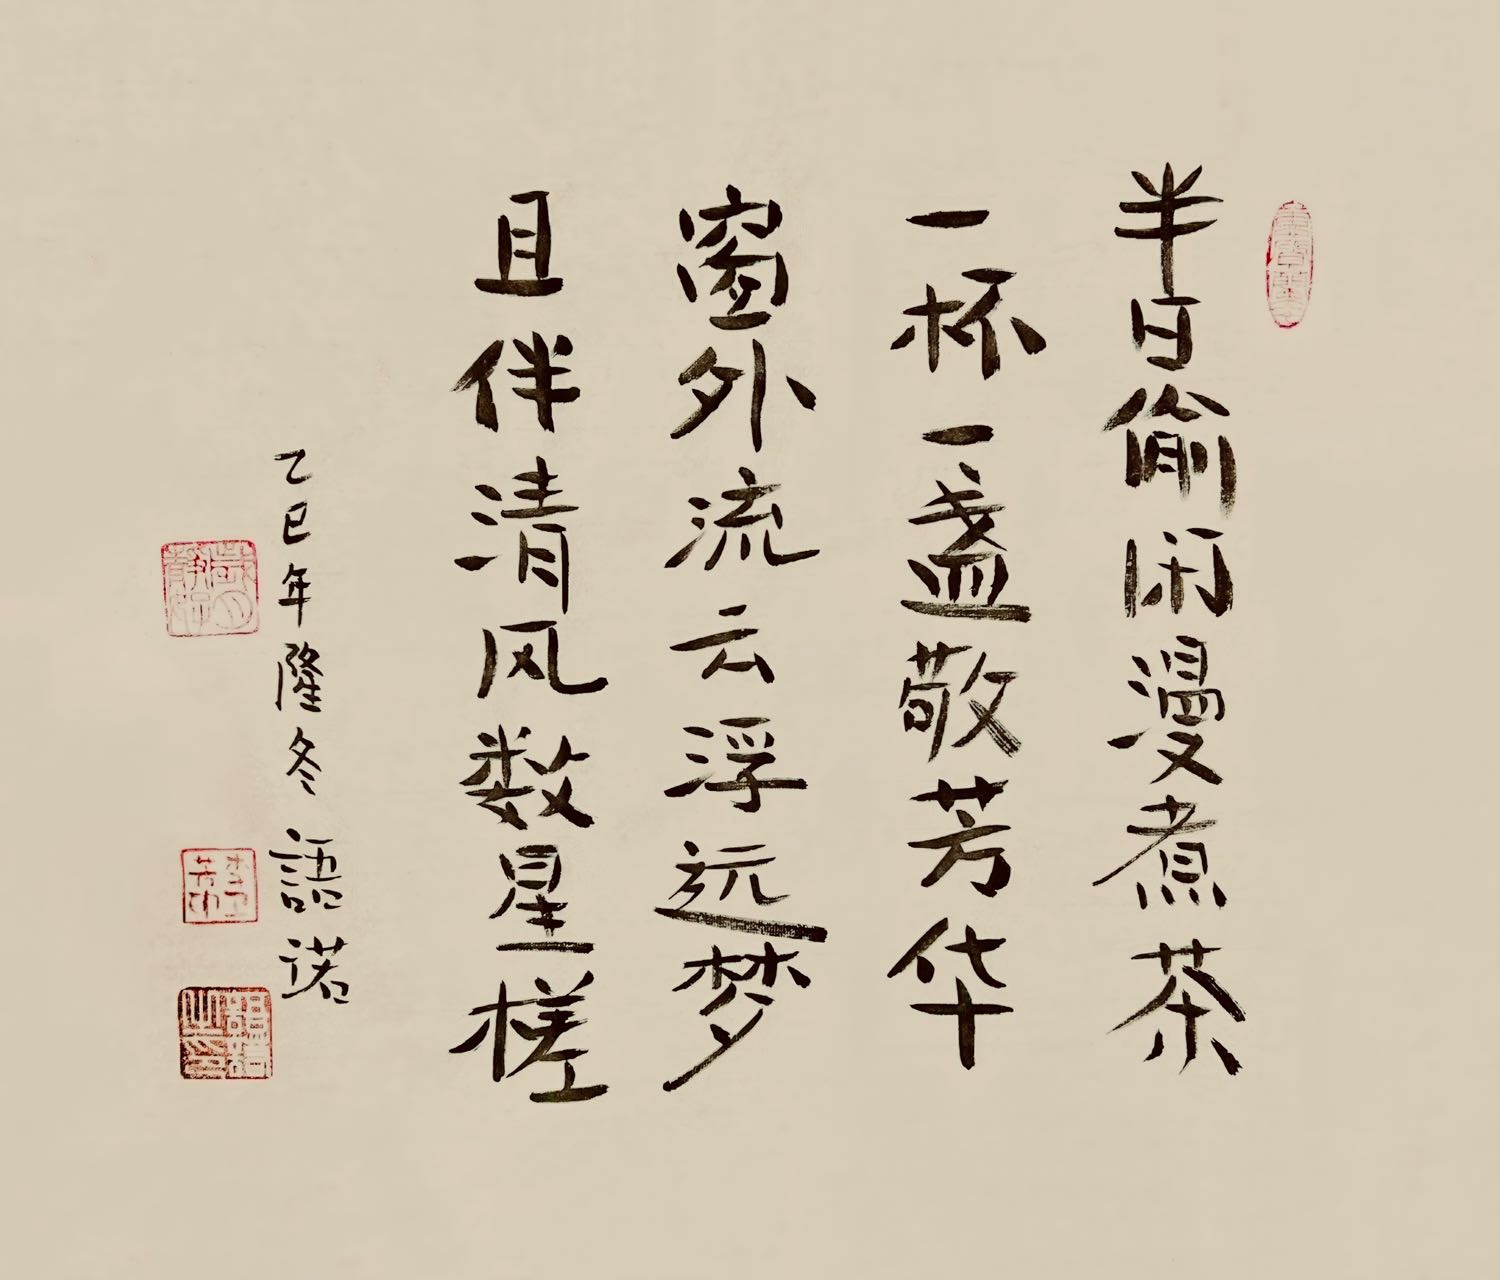 半日偷闲漫煮茶
一杯一盏敬芳华
窗外流云浮远梦
且伴清风数星槎
乙巳年隆冬 語诺
岁月静好